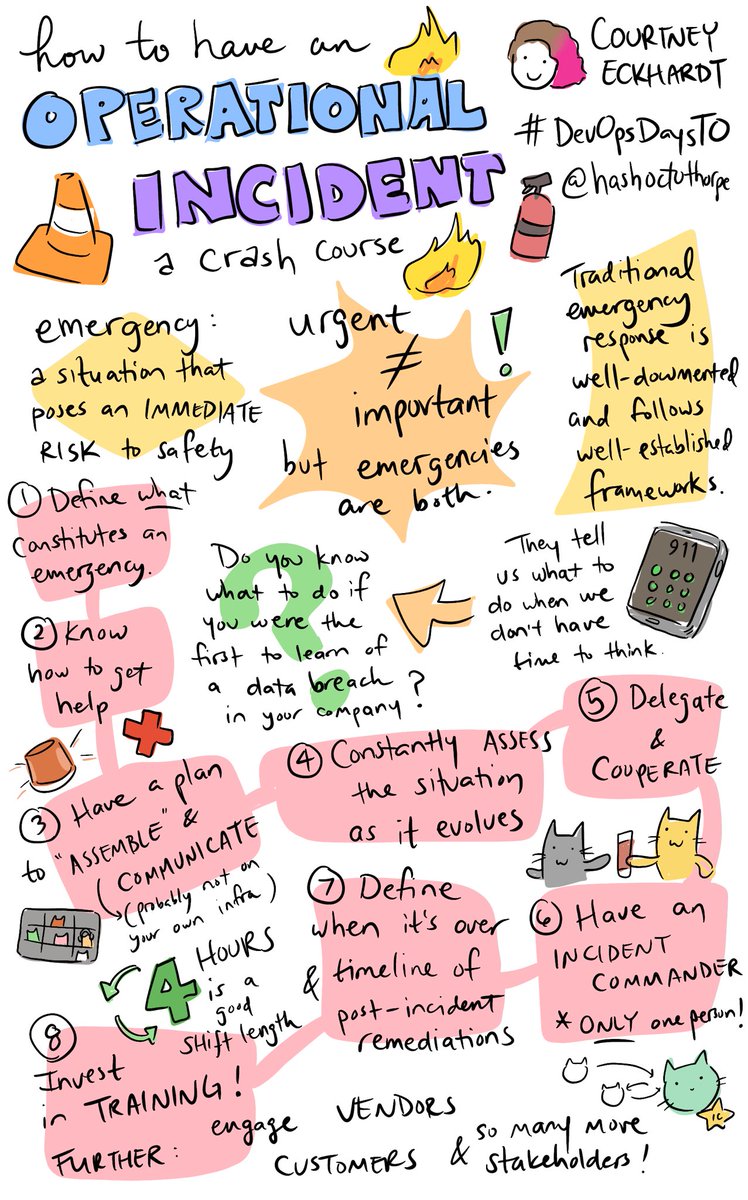 how to have an
OPERATIONAL
INCIDENT
a crash course
COURTNEY
ECKHARDT
# DevOpsDaysTO
@hashoctothorpe
emergency:
a situation that
poses an IMMEDIATE
RISK to safety
urgent
≠
important
but emergencies
are both.
!
Traditional
emergency
response is
well-documented
and follows
well-established
frameworks.
They tell
us what to
do when we
don't have
time to think.
911
Do you know
what to do if
you were the
first to learn of
a data breach
in your company?
?
① Define what
constitutes an
emergency.
② Know
how to get
help
③ Have a plan
to "ASSEMBLE" &
COMMUNICATE
(probably not on
your own infra)
④ Constantly ASSESS
the situation
as it evolves
⑤ Delegate
&
COOPERATE
⑥ Have an
INCIDENT
COMMANDER
* ONLY one person!
IC
⑦ Define
when it's over
& timeline of
post-incident
remediations
4 HOURS
is a
good
shift length
⑧
Invest
in TRAINING!
FURTHER: engage VENDORS
CUSTOMERS & so many more
stakeholders!